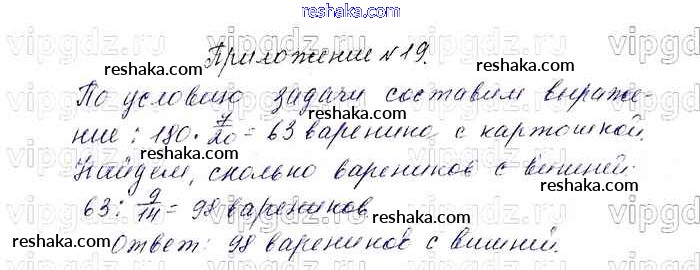 reshaka.com
Приложение №19.
reshaka.com reshaka.com
По условию задачи составим выраже-
ние: 180 · 7/20 = 63 вареника с картошкой.
reshaka.com reshaka.com
Найдем, сколько вареников с вишней:
63 : 9/14 = 98 вареников.
reshaka.com reshaka.com
Ответ: 98 вареников с вишней.
reshaka.com